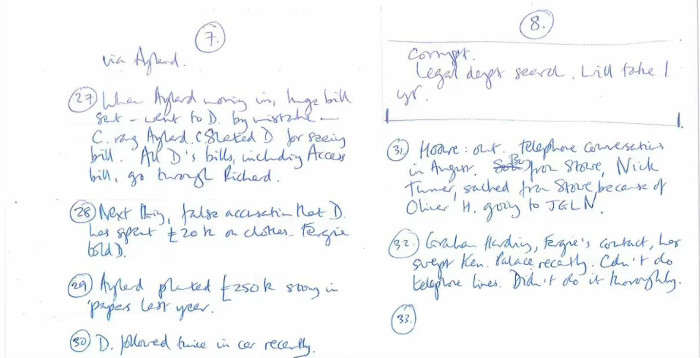 7.
via Aylard.
27 When Aylard moving in, huge bill
sent - went to D. by mistake -
C. rang Aylard. C slated D for seeing
bill. All D's bills, including Access
bill, go through Richard.
28 Next thing, false accusation that D.
has spent £20k on clothes. Fergie
told D.
29 Aylard planted £250k story in
'papers last year.
30 D. followed twice in car recently.
8.
corrupt.
Legal dept search. Will take 1
yr.
31. Hoare: out. telephone conversations
in August. By from Stowe, Nick
Turner, sacked from Stowe because of
Oliver H. going to J&LN.
32. Graham Harding, Fergie's contact, has
swept Ken. Palace recently. Cdn't do
telephone lines. Didn't do it thoroughly.
33.